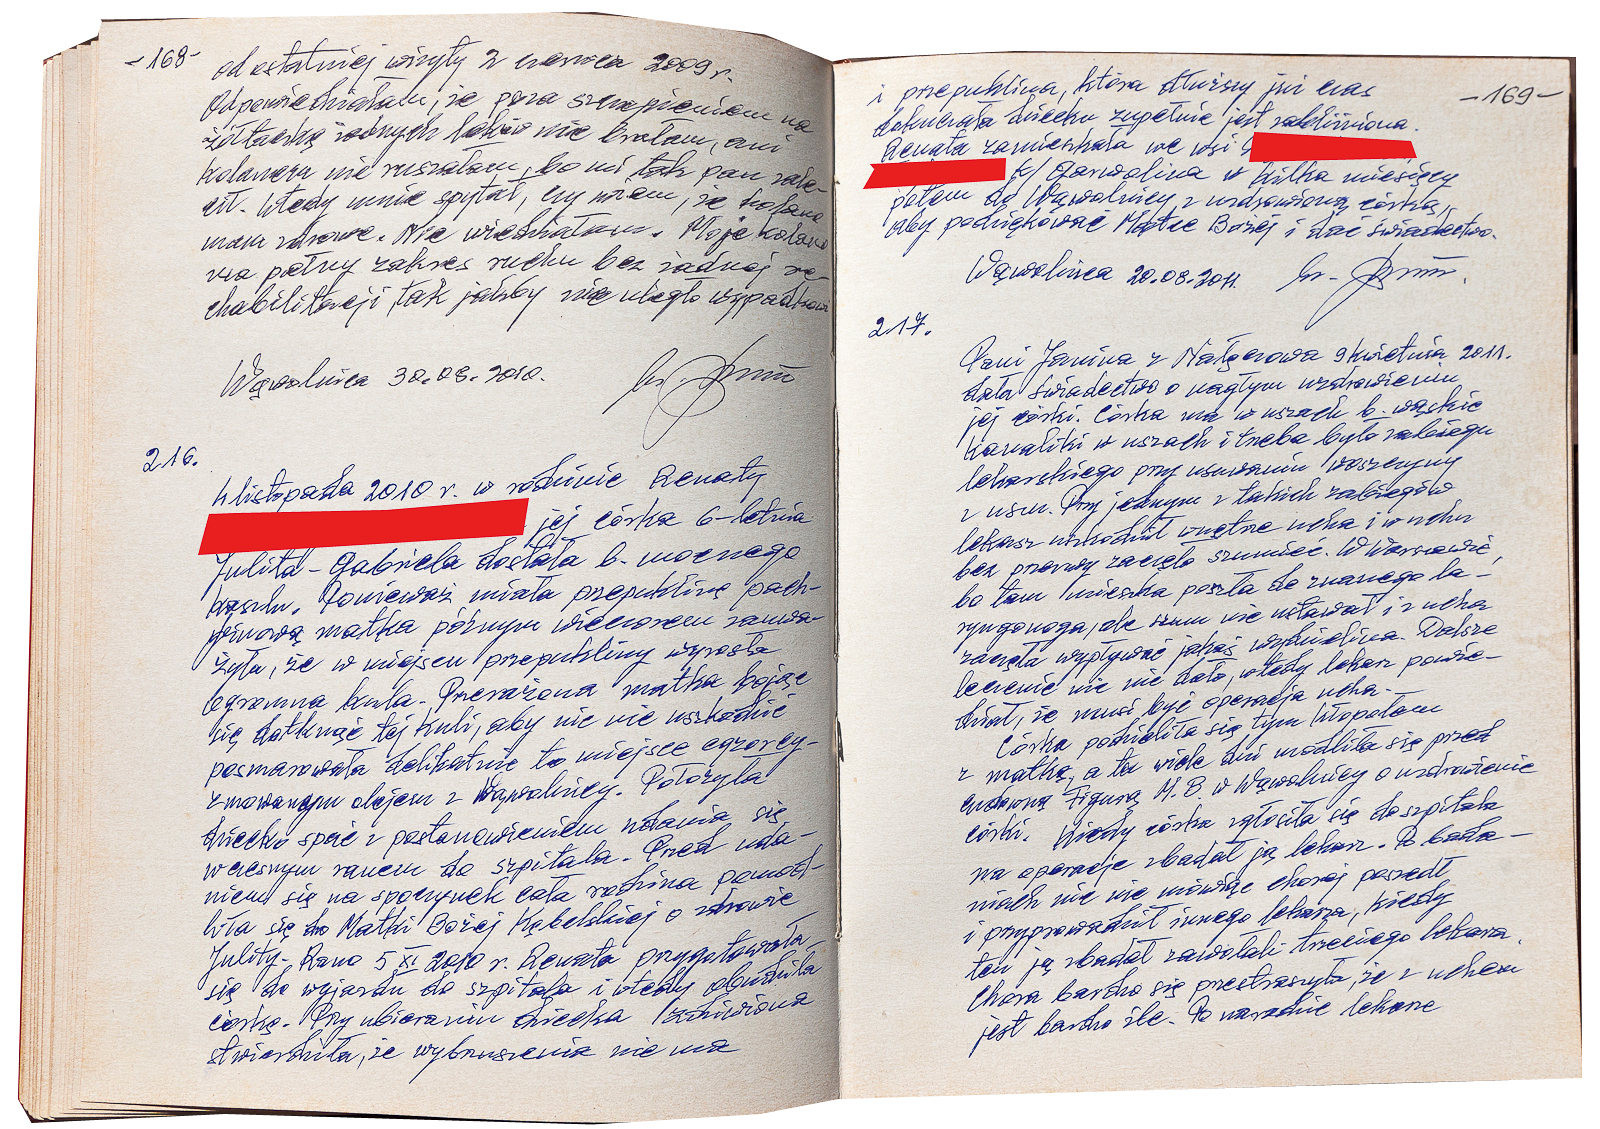 -168-
od ostatniej wizyty z czerwca 2009 r.
Odpowiedziałam, że poza szczepieniem na
żółtaczkę żadnych leków nie brałam, ani
kolanem nie ruszałam, bo mi tak pan zale-
cił. Wtedy mnie spytał, czy wiem, że kolano
mam zdrowe. Nie wiedziałam. Moje kolano
ma pełny zakres ruchu bez żadnej re-
habilitacji, tak jakby nie uległo wypadkowi
Wąwolnica 30.08.2010.
216.
4 listopada 2010 r. w rodzinie Renaty
jej córka 6-letnia
Julita-Gabriela dostała b. mocnego
kaszlu. Ponieważ miała przepuklinę pach-
winową matka późnym wieczorem zauwa-
żyła, że w miejscu przepukliny wyrosła
ogromna kula. Przerażona matka bojąc
się dotknąć tej kuli, aby nic nie uszkodzić
posmarowała delikatnie to miejsce egzorcy-
zmowanym olejem z Wąwolnicy. Położyła
dziecko spać z postanowieniem udania się
wczesnym ranem do szpitala. Przed uda-
niem się na spoczynek cała rodzina pomod-
liła się do Matki Bożej Kębelskiej o zdrowie
Julity. Rano 5 XI 2010 r. Renata przygotowała
się do wyjazdu do szpitala i wtedy obudziła
córkę. Przy ubieraniu dziecka zdziwiona
stwierdziła, że wybrzuszenia nie ma
-169-
i przepuklina, która dłuższy już czas
dokuczała dziecku zupełnie jest zabliźniona.
Renata zamieszkała we wsi
k/ Garwolina w kilka miesięcy
potem do Wąwolnicy z uzdrowioną córką,
aby podziękować Matce Bożej i dać świadectwo.
Wąwolnica 20.08.2011.
217.
Pani Janina z Nałęczowa 9 kwietnia 2011.
dała świadectwo o nagłym uzdrowieniu
jej córki. Córka ma w uszach b. wąskie
kanaliki w uszach i trzeba było zabiegu
lekarskiego przy usuwaniu woszczyny
z uszu. Przy jednym z takich zabiegów
lekarz uszkodził wnętrze ucha i w uchu
bez przerwy zaczęło szumieć. W Warszawie,
bo tam mieszka poszła do znanego la-
ryngologa, ale szum nie ustawał i z ucha
zaczęła wypływać jakaś wydzielina. Dalsze
leczenie nic nie dało, wtedy lekarz powie-
dział, że musi być operacja ucha.
Córka podzieliła się tym kłopotem
z matką, a ta wiele dni modliła się przed
cudowną Figurą M. B. w Wąwolnicy o uzdrowienie
córki. Kiedy córka zgłosiła się do szpitala
na operację zbadał ją lekarz. Po bada-
niach nic nie mówiąc chorej poszedł
i przyprowadził innego lekarza, kiedy
ten ją zbadał zawołali trzeciego lekarza.
Chora bardzo się przestraszyła, że z uchem
jest bardzo źle. Po naradzie lekarze